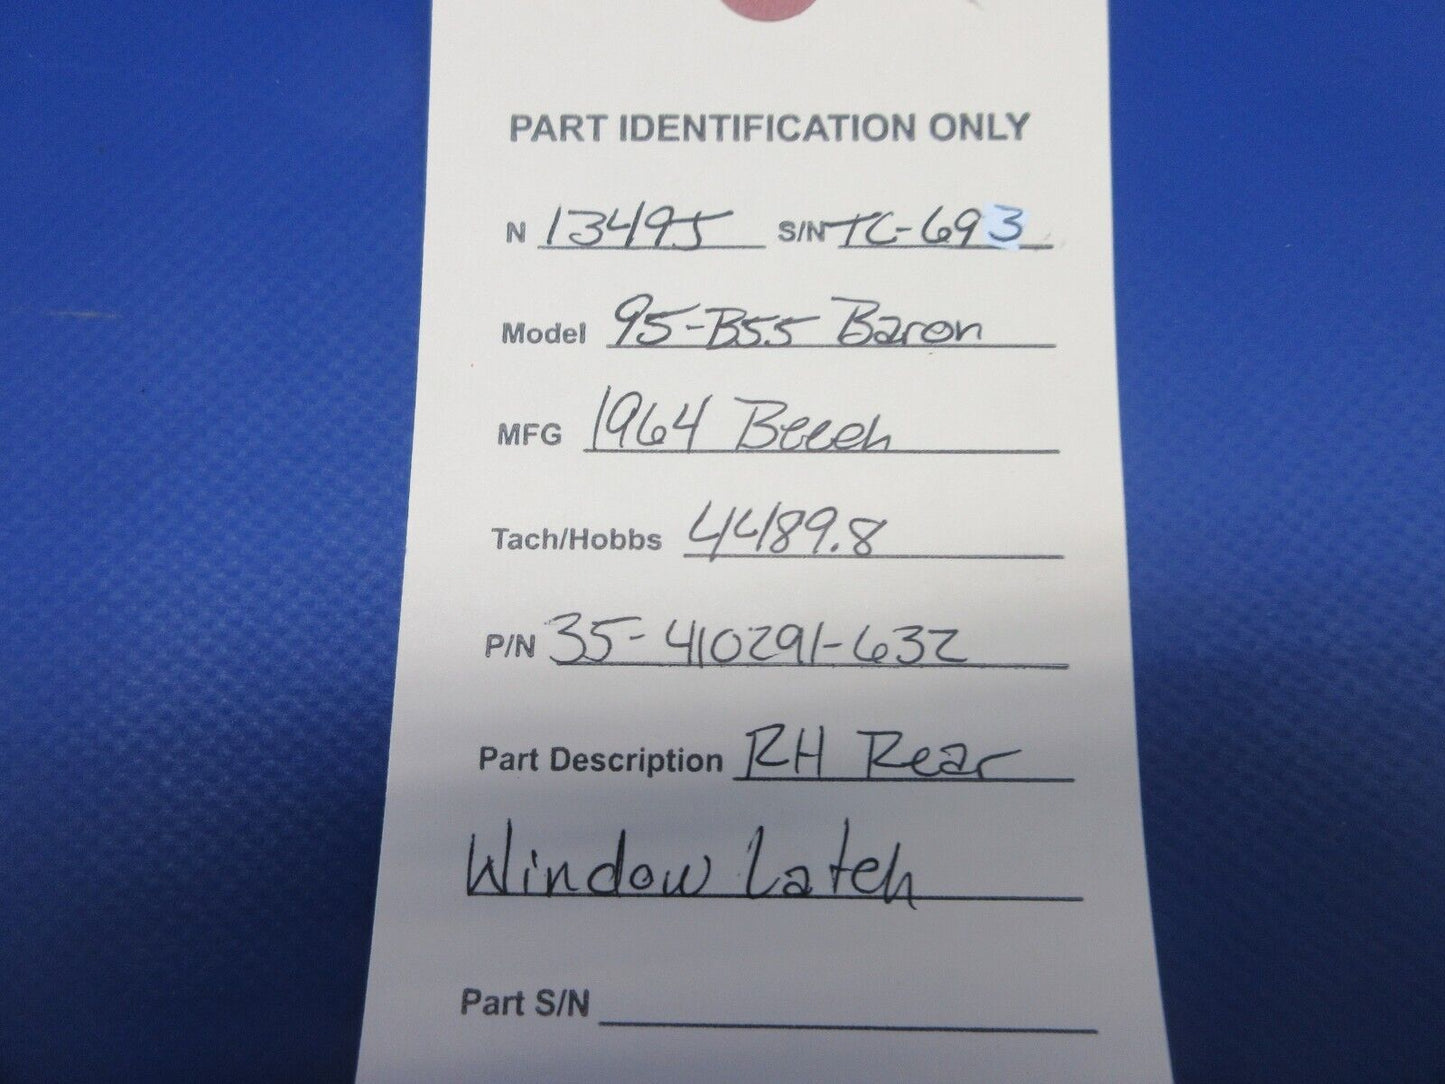 PART IDENTIFICATION ONLY
N 13495 S/N TC-693
Model 95-B55 Baron
MFG 1964 Beech
Tach/Hobbs 4489.8
P/N 35-410291-632
Part Description RH Rear
Window Latch
Part S/N